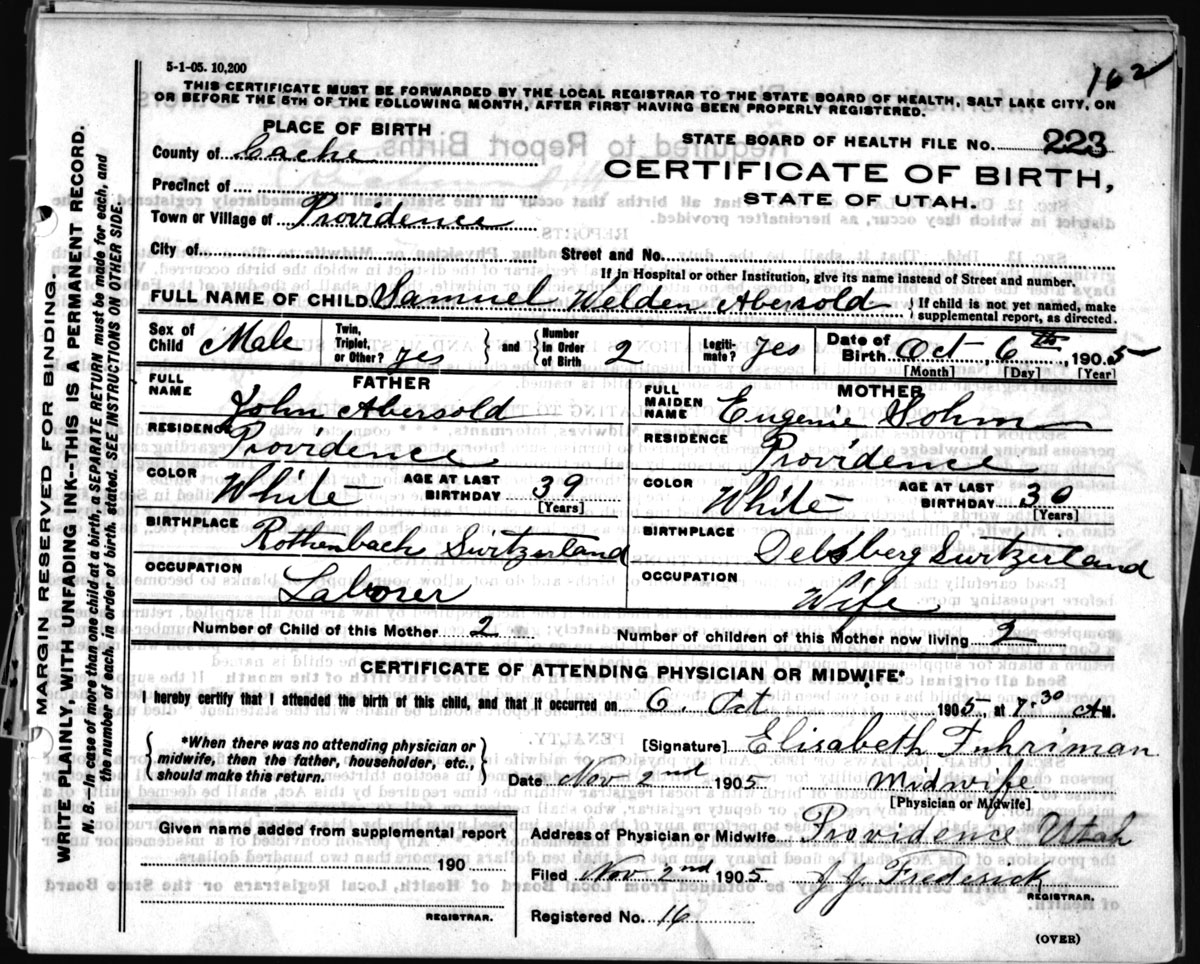 5-1-05. 10,200
162
THIS CERTIFICATE MUST BE FORWARDED BY THE LOCAL REGISTRAR TO THE STATE BOARD OF HEALTH, SALT LAKE CITY, ON
OR BEFORE THE 5TH OF THE FOLLOWING MONTH, AFTER FIRST HAVING BEEN PROPERLY REGISTERED.
PLACE OF BIRTH
STATE BOARD OF HEALTH FILE No. 223
County of Cache
CERTIFICATE OF BIRTH,
STATE OF UTAH.
Precinct of
Town or Village of Providence
City of
Street and No.
If in Hospital or other Institution, give its name instead of Street and number.
FULL NAME OF CHILD Samuel Welden Abersold { If child is not yet named, make
supplemental report, as directed.
Sex of Child Male
Twin, Triplet, or Other? yes } and { Number in Order of Birth 2
Legiti-mate? yes
Date of Birth Oct 6th, 1905
[Month] [Day] [Year]
FATHER
FULL NAME John Abersold
MOTHER
FULL MAIDEN NAME Eugenie Sohm
RESIDENCE Providence
RESIDENCE Providence
COLOR White AGE AT LAST BIRTHDAY 39 [Years]
COLOR White AGE AT LAST BIRTHDAY 30 [Years]
BIRTHPLACE Rothenbach Switzerland
BIRTHPLACE Delsberg Switzerland
OCCUPATION Laborer
OCCUPATION Wife
Number of Child of this Mother 2
Number of children of this Mother now living 2
CERTIFICATE OF ATTENDING PHYSICIAN OR MIDWIFE*
I hereby certify that I attended the birth of this child, and that it occurred on 6. Oct 1905, at 30 A M.
{ *When there was no attending physician or
midwife, then the father, householder, etc.,
should make this return. }
[Signature] Elisabeth Fuhriman
Date Nov 2nd 1905 Midwife
[Physician or Midwife]
Given name added from supplemental report
190
REGISTRAR.
Address of Physician or Midwife Providence Utah
Filed Nov 2nd 1905 J. J. Frederick
REGISTRAR.
Registered No. 16
(OVER)
MARGIN RESERVED FOR BINDING.
WRITE PLAINLY WITH UNFADING INK--THIS IS A PERMANENT RECORD.
N. B.--In case of more than one child at a birth, a SEPARATE RETURN must be made for each, and
the number of each, in order of birth, stated. SEE INSTRUCTIONS ON OTHER SIDE.